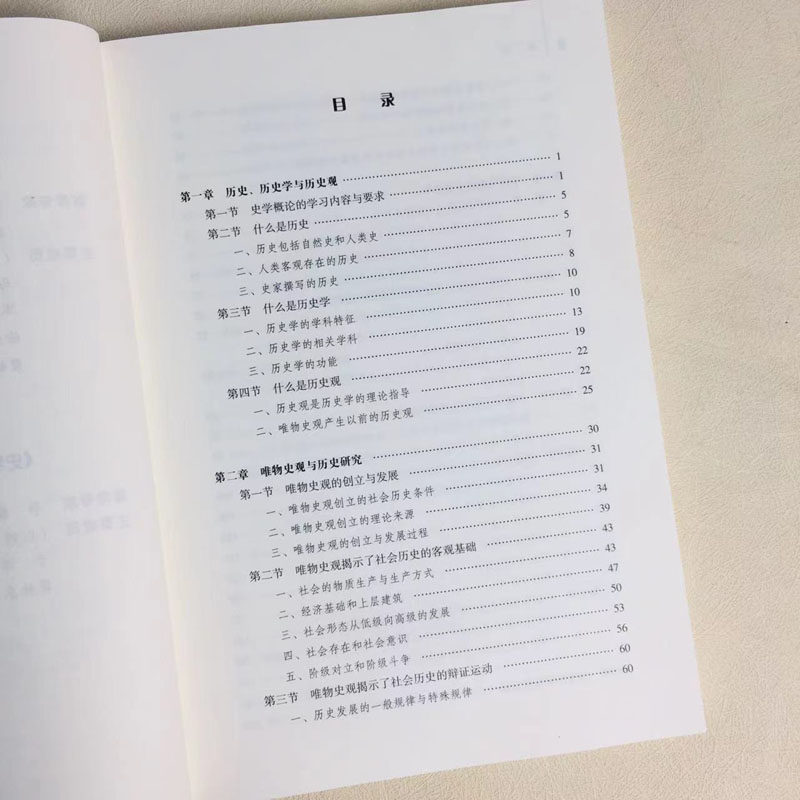 目 录
第一章 历史、历史学与历史观 …… 1
第一节 史学概论的学习内容与要求 …… 1
第二节 什么是历史 …… 5
一、历史包括自然史和人类史 …… 5
二、人类客观存在的历史 …… 7
三、史家撰写的历史 …… 8
第三节 什么是历史学 …… 10
一、历史学的学科特征 …… 10
二、历史学的相关学科 …… 13
三、历史学的功能 …… 19
第四节 什么是历史观 …… 22
一、历史观是历史学的理论指导 …… 22
二、唯物史观产生以前的历史观 …… 25
第二章 唯物史观与历史研究 …… 30
第一节 唯物史观的创立与发展 …… 31
一、唯物史观创立的社会历史条件 …… 31
二、唯物史观创立的理论来源 …… 34
三、唯物史观的创立与发展过程 …… 39
第二节 唯物史观揭示了社会历史的客观基础 …… 43
一、社会的物质生产与生产方式 …… 43
二、经济基础和上层建筑 …… 47
三、社会形态从低级向高级的发展 …… 50
四、社会存在和社会意识 …… 53
五、阶级对立和阶级斗争 …… 56
第三节 唯物史观揭示了社会历史的辩证运动 …… 60
一、历史发展的一般规律与特殊规律 …… 60